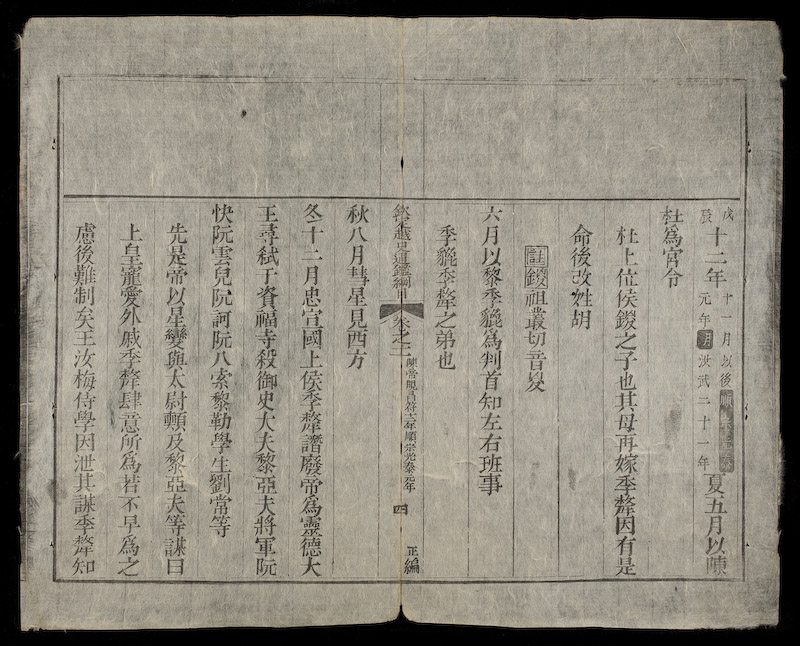 戊辰十二年 十一月以後順宗光泰元年 明洪武二十一年 夏五月以陳
杜爲宮令
杜上位侯鍐之子也其母再嫁季犛因有是
命後改姓胡
註鍐祖叢切音嵏
六月以黎季貔爲判首知左右班事
季貔季犛之弟也
欽定越史通鑑綱目 卷之 陳帝晛昌符十二年順宗光泰元年 四 正編
秋八月彗星見西方
冬十二月忠宣國上侯季犛譖廢帝爲靈德大
王尋弒于資福寺殺御史大夫黎亞夫將軍阮
快阮雲兒阮訶阮八索黎勒學生劉常等
先是帝以星變與太尉頠及黎亞夫等謀曰
上皇寵愛外戚季犛肆意所爲若不早爲之
慮後難制矣王汝梅侍學因泄其謀季犛知